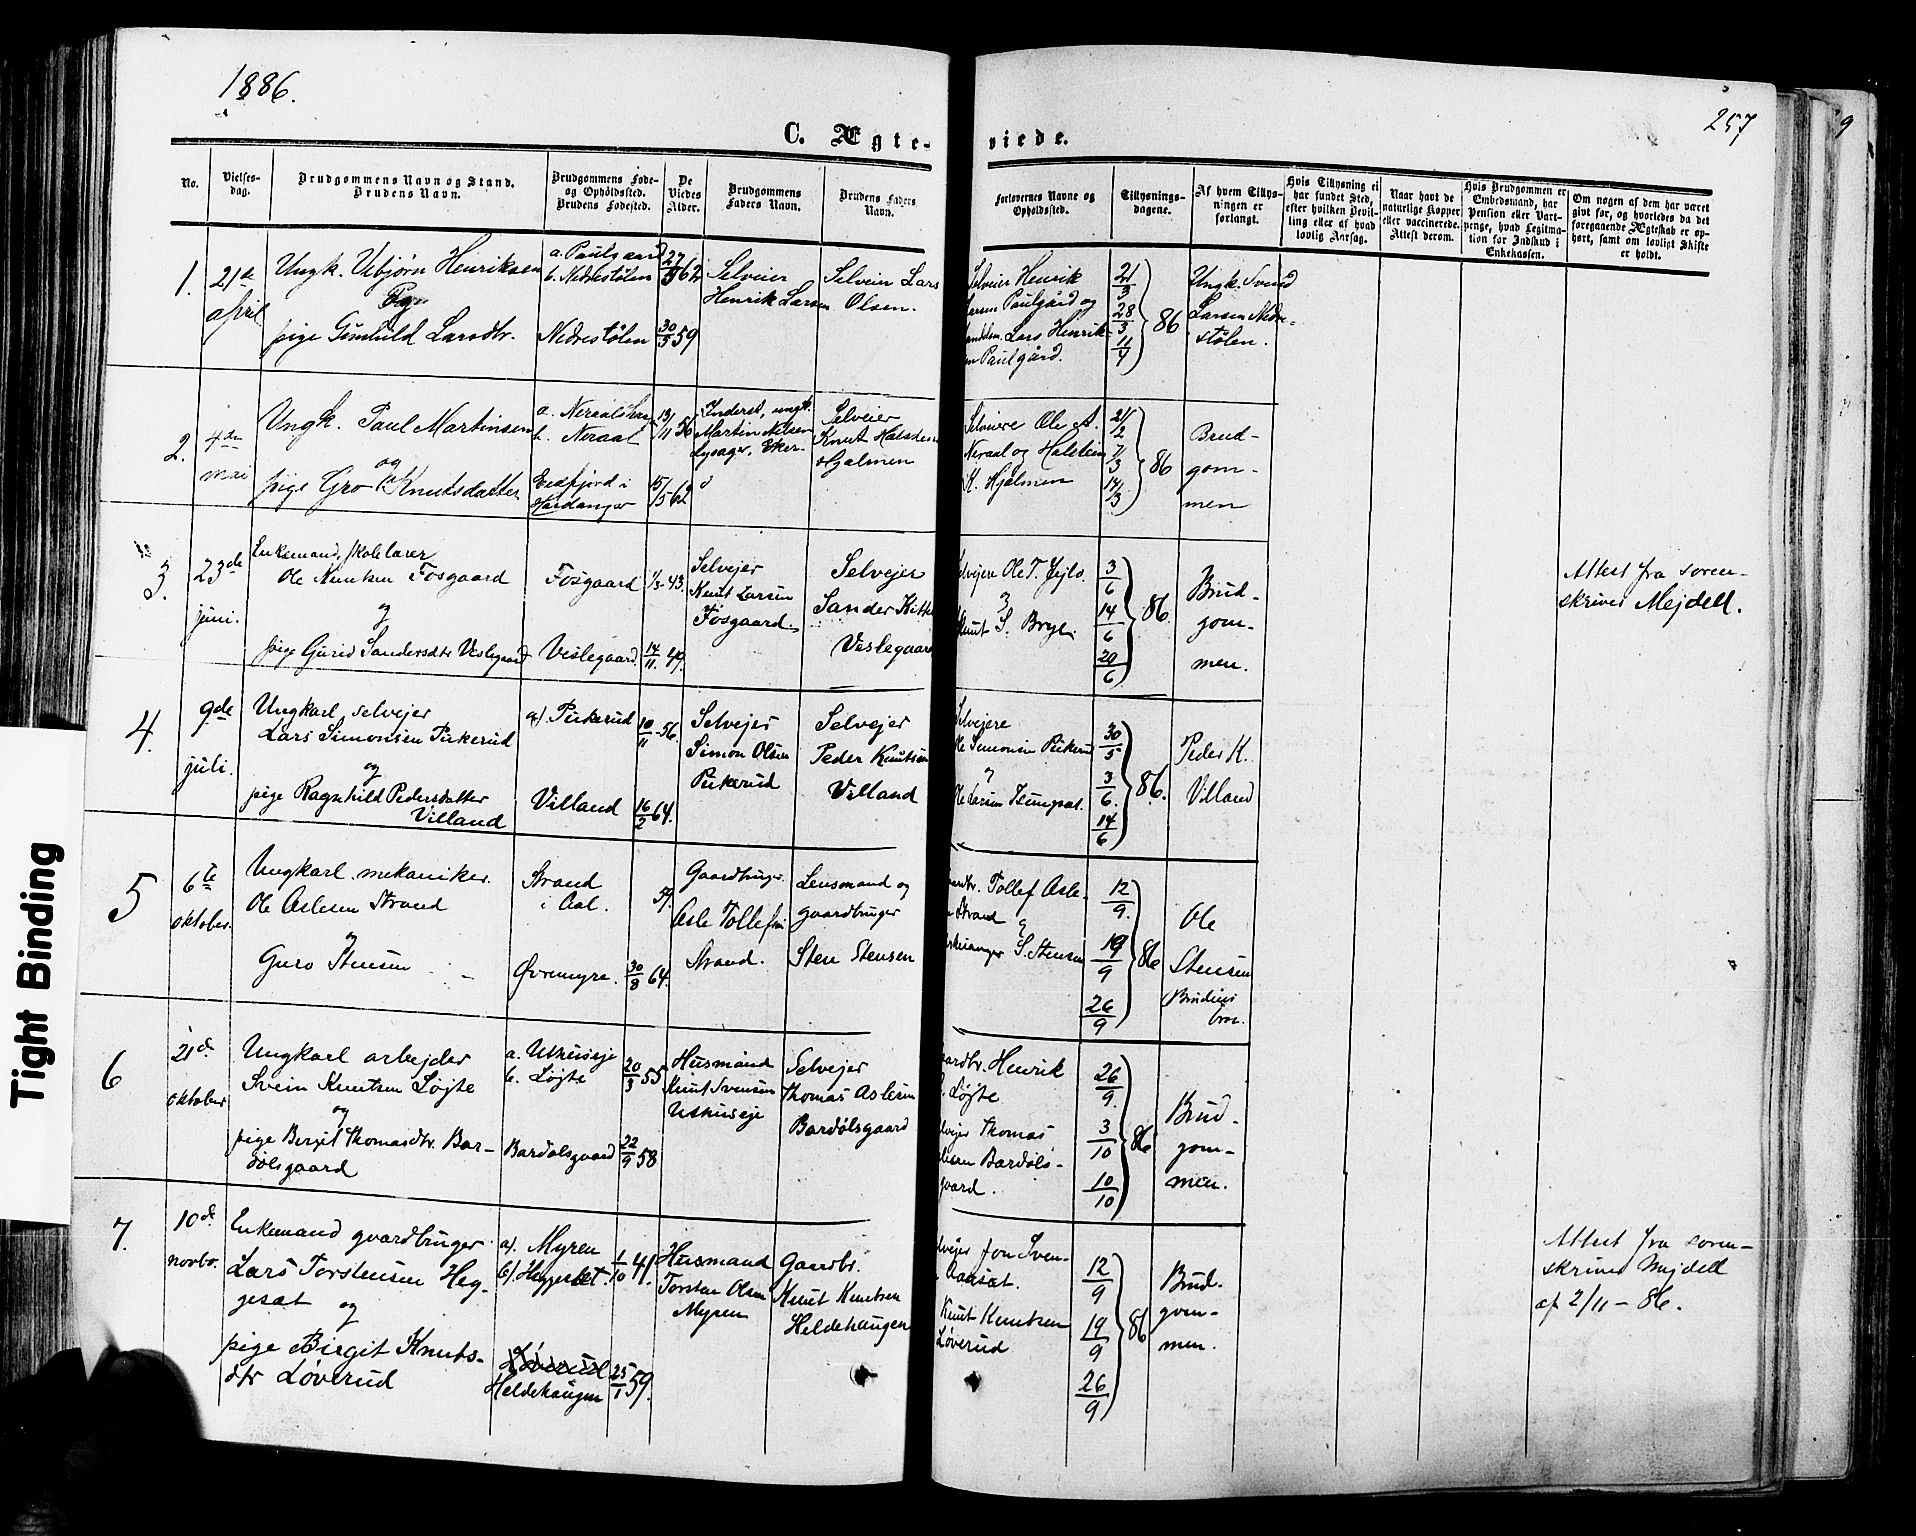 1886.
257
9
C. Ægte-
viede.
No.
Vielses-
dag.
Brudgommens Navn og Stand.
Brudens Navn.
Brudgommens Føde-
og Opholdssted.
Brudens Fødested.
De
Viedes
Alder.
Brudgommens
Faders Navn.
Brudens Faders
Navn.
Forlovernes Navne og
Opholdssted.
Tillysnings-
dagene.
Af hvem Tillys-
ningen er
forlangt.
Hvis Tillysning ei
har fundet Sted,
efter hvilken Bevil-
ling eller af hvad
lovlig Aarsag.
Naar havt de
naturlige Kopper
eller vaccinerede.
Attest derom.
Hvis Brudgommen er
Embedsmand, har
Pension eller Vart-
penge, hvad Legitima-
tion for Indskud i
Enkekassen.
Om nogen af dem har været
gift før, og hvorledes da det
foregaaende Ægteskab er op-
hørt, samt om lovligt Skifte
er holdt.
1.
21de
april
Ungk. Vebjørn Henriksen
og
pige Gunhild Larsdtr.
a. Paulgaard
b. Nedrestølen
Nedrestølen
27/3 62
30/5 59
Selveier
Henrik Larsen
Selveier Lars
Olsen.
Selveier Henrik
Larsen Paulgård og
Lars Henrik-
Paulgård.
21/3
28/3
11/4
86
Ungk. Svend
Larsen Nedre-
stølen.
2.
4de
mai
Ungk. Paul Martinsen
og
pige Gro Knutsdatter
a. Neraalshag
b. Neraal
Eidfjord i
Hardanger
13/11 56
15/5 62
Inderst, ungk.
Martin Nilsen
Lysager, Eker
Selveier
Knut Halsten
Hjalmen
Selveiere Ole A.
Neraal og Halstein
K. Hjalmen
21/2
7/3
14/3
86
Brud-
gom-
men
3.
23de
juni.
Enkemand, skolelærer
Ole Knutsen Fosgaard
og
pige Gurid Sandersdtr Veslegaard
Fosgaard
Veslegaard
1/3-43.
14/11. 49.
Selvejer
Knut Larsen
Fosgaard.
Selvejer
Sander Kittil
Veslegaard
Selvejere Ole T.
og
Knut S. Brye.
3/6
14/6
20/6
86
Brud-
gom-
men.
Attest fra soren-
skriver Mejdell.
4.
9de
juli.
Ungkarl selvejer
Lars Simonsen Pukerud
og
pige Ragnhild Pedersdatter
Villand
a) Pukerud
Villand
10/11-56.
16/2 64.
Selvejer
Simon Olsen
Pukerud
Selvejer
Peder Knutsen
Villand
Selvejere
Ole Simonsen Pukerud
og
Ole Larsen
30/5
3/6.
14/6
86.
Peder K.
Villand
5
6te
oktober.
Ungkarl mekaniker.
Ole Aslesen Strand
og
Guro Stensen
Strand
i Aal.
Øvremyre.
57.
30/8 64.
Gaardbruger
Asle Tollefsen
Strand.
Lensmand og
gaardbruger
Sten Stensen
Gaardbr. Tollef Asle-
Strand
og
S. Stensen
12/9.
19/9
26/9
86
Ole
Stensen
Brudens
bror.
6
21de
oktober
Ungkarl arbejder
Svein Knutsen Løgte
og
pige Birgit Thomasdtr. Bar-
dølsgaard
a. Uthuseje
b. Løgte
Bardølsgaard
20/3 55
22/9 58
Husmand
Knut Svensen
Uthuseje
Selvejer
Thomas Aslesen
Bardølsgaard
Gaardbr. Henrik
Løgte
Selvejer Thomas
Aslesen Bardøls-
gaard.
26/9.
3/10
10/10
86
Brud-
gom-
men.
7.
10de
novbr.
Enkemand gaardbruger
Lars Torstensen Heg-
gesæt
og
pige Birgit Knuts-
dtr Løverud
a). Myren
b). Heggeset.
Løverud
Heldehaugen
1/10 41.
25/1 59.
Husmand
Torsten Olsen
Myren
Gaardbr.
Knut Knutsen
Heldehaugen
Selvejer Jon Sven-
Aasæt.
Knut Knutsen
Løverud
12/9
19/9
26/9
86
Brud-
gom-
men.
Attest fra soren-
skriver Mejdell
af 2/11 - 86.
Tight Binding